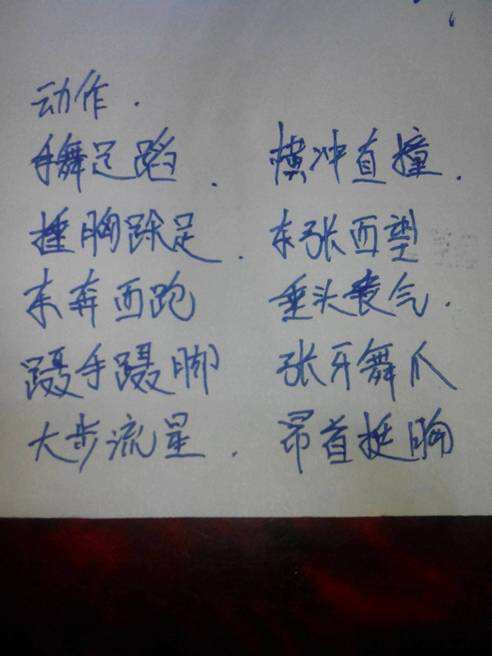 动作.
手舞足蹈. 横冲直撞.
捶胸跺足. 东张西望
东奔西跑 垂头丧气.
蹑手蹑脚 张牙舞爪
大步流星. 昂首挺胸